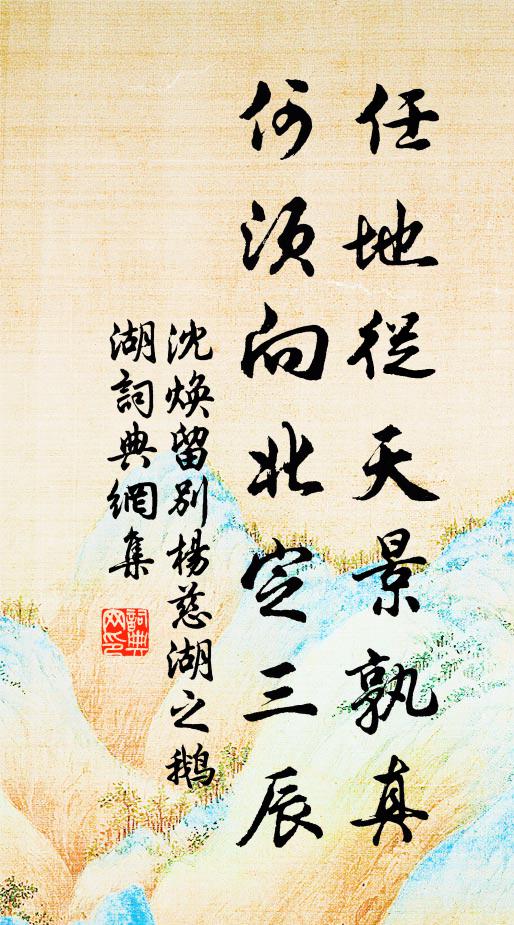 任地從天景孰真
何須向北定三辰
沈煥留別楊慈湖之鵝
湖詞典網集
詞典
网印